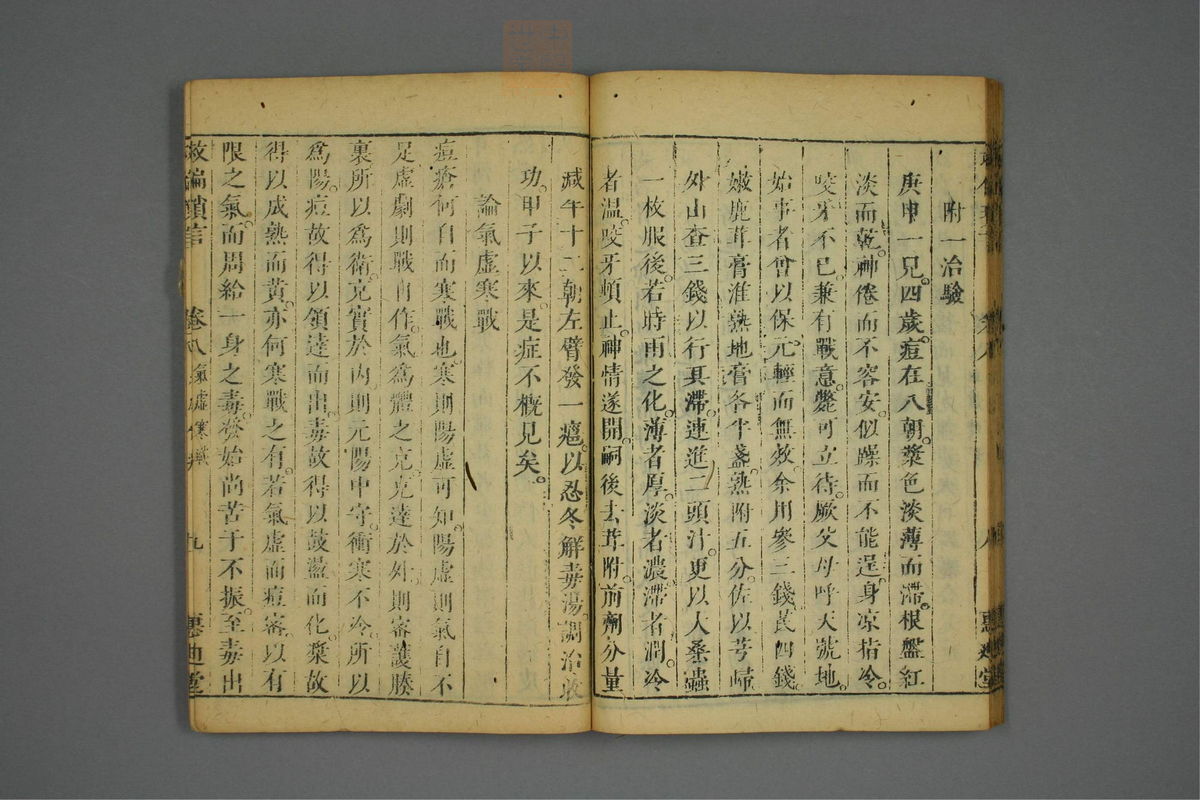 附一治驗
庚申一兒。四歲。痘在八朝。漿色淡薄而滯。根盤紅
淡而乾。神倦而不容安。似躁而不能逞。身凉指冷。
咬牙不已。兼有戰意。斃可立待。厥父母呼天號地。
始事者曾以保元輕而無效。余用參三錢。芪四錢。
嫩鹿茸膏淮熟地膏各半盞。熟附五分。佐以芎歸。
外山查三錢以行其滯。連進二頭汁。更以人桑蟲
一枚服後。若時雨之化。薄者厚。淡者濃。滯者潤。冷
者溫。咬牙頓止。神情遂開。嗣後去茸附。前劑分量
減半。十二朝左臂發一癰。以忍冬解毒湯調治收
功。甲子以來。是症不概見矣。
論氣虛寒戰
痘瘡何自而寒戰也。寒則陽虛可知。陽虛則氣自不
足。虛劇則戰自作。氣爲體之充。充達於外。則審護腠
裏。所以爲衛。充實於內。則元陽中守。衝寒不冷。所以
爲陽。痘故得以領達而出。毒故得以鼓盪而化。漿故
得以成熟而黃。亦何寒戰之有。若氣虛而痘密。以有
限之氣。而周給一身之毒。發始尚苦于不振。至毒出
救偏瑣言 卷八 氣虛寒戰 九 惠迪堂